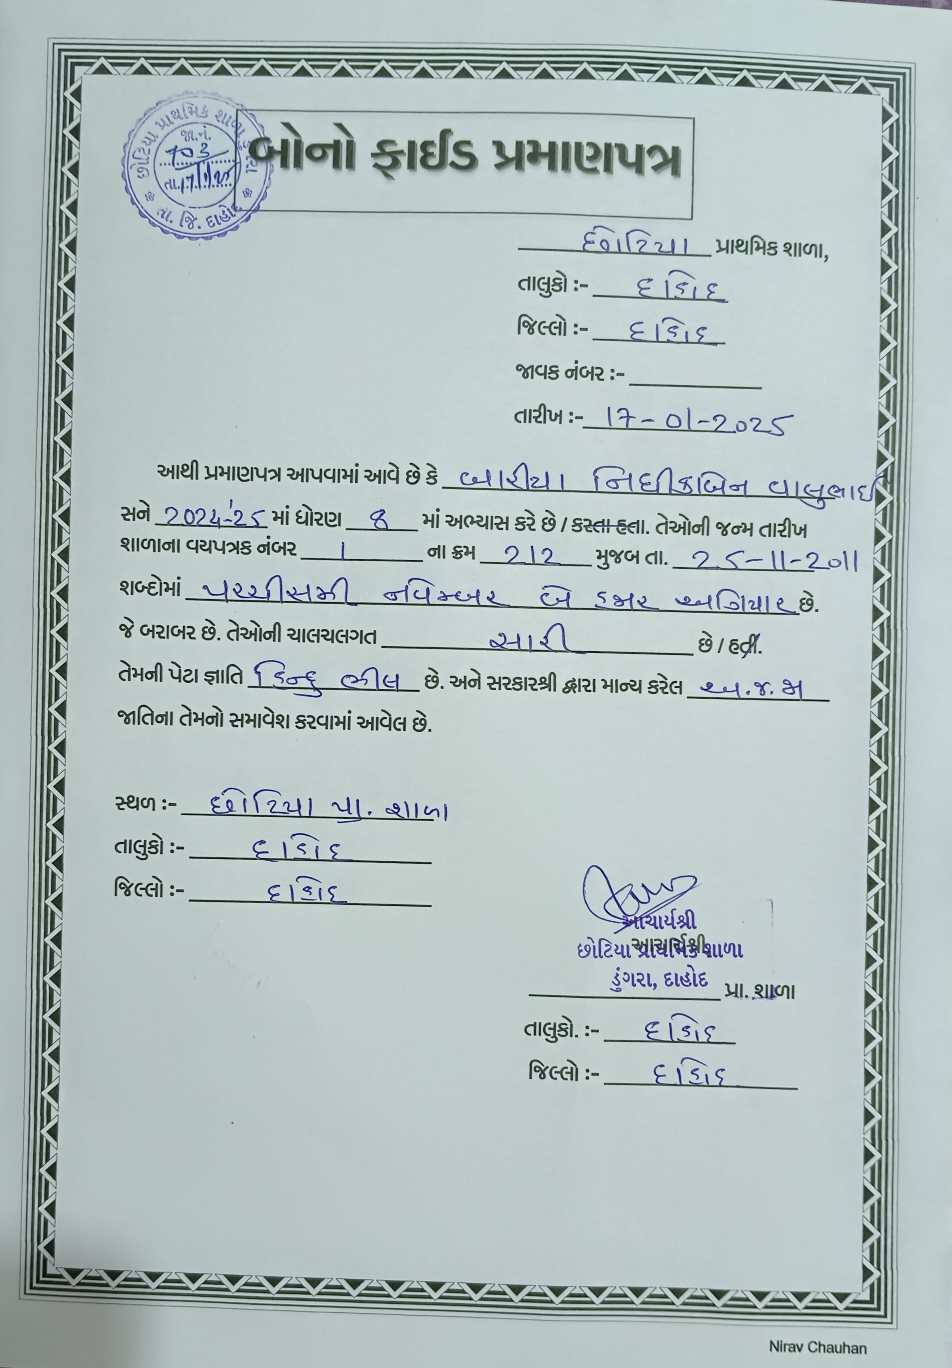 છોટિયા પ્રાથમિક શાળા, ડુંગરા
જા.નં.
703
તા.17/1/25
તા. જિ. દાહોદ
બોનો ફાઈડ પ્રમાણપત્ર
છોટિયા પ્રાથમિક શાળા,
તાલુકો :- દાહોદ
જિલ્લો :- દાહોદ
જાવક નંબર :-
તારીખ :- 17-01-2025
આથી પ્રમાણપત્ર આપવામાં આવે છે કે બારીયા નિધીકાબેન વાલુભાઈ
સને 2024'-25 માં ધોરણ 8 માં અભ્યાસ કરે છે / કરતા હતા. તેઓની જન્મ તારીખ
શાળાના વયપત્રક નંબર 1 ના ક્રમ 212 મુજબ તા. 25-11-2011
શબ્દોમાં પચ્ચીસમી નવેમ્બર બે હજાર અગિયાર છે.
જે બરાબર છે. તેઓની ચાલચલગત સારી છે / હતી.
તેમની પેટા જ્ઞાતિ હિન્દુ ભીલ છે. અને સરકારશ્રી દ્વારા માન્ય કરેલ અ.જ.જા
જાતિના તેમનો સમાવેશ કરવામાં આવેલ છે.
સ્થળ :- છોટિયા પ્રા. શાળા
તાલુકો :- દાહોદ
જિલ્લો :- દાહોદ
આચાર્યશ્રી
આચાર્યશ્રી
છોટિયા પ્રાથમિક શાળા
ડુંગરા, દાહોદ
પ્રા. શાળા
તાલુકો. :- દાહોદ
જિલ્લો :- દાહોદ
Nirav Chauhan